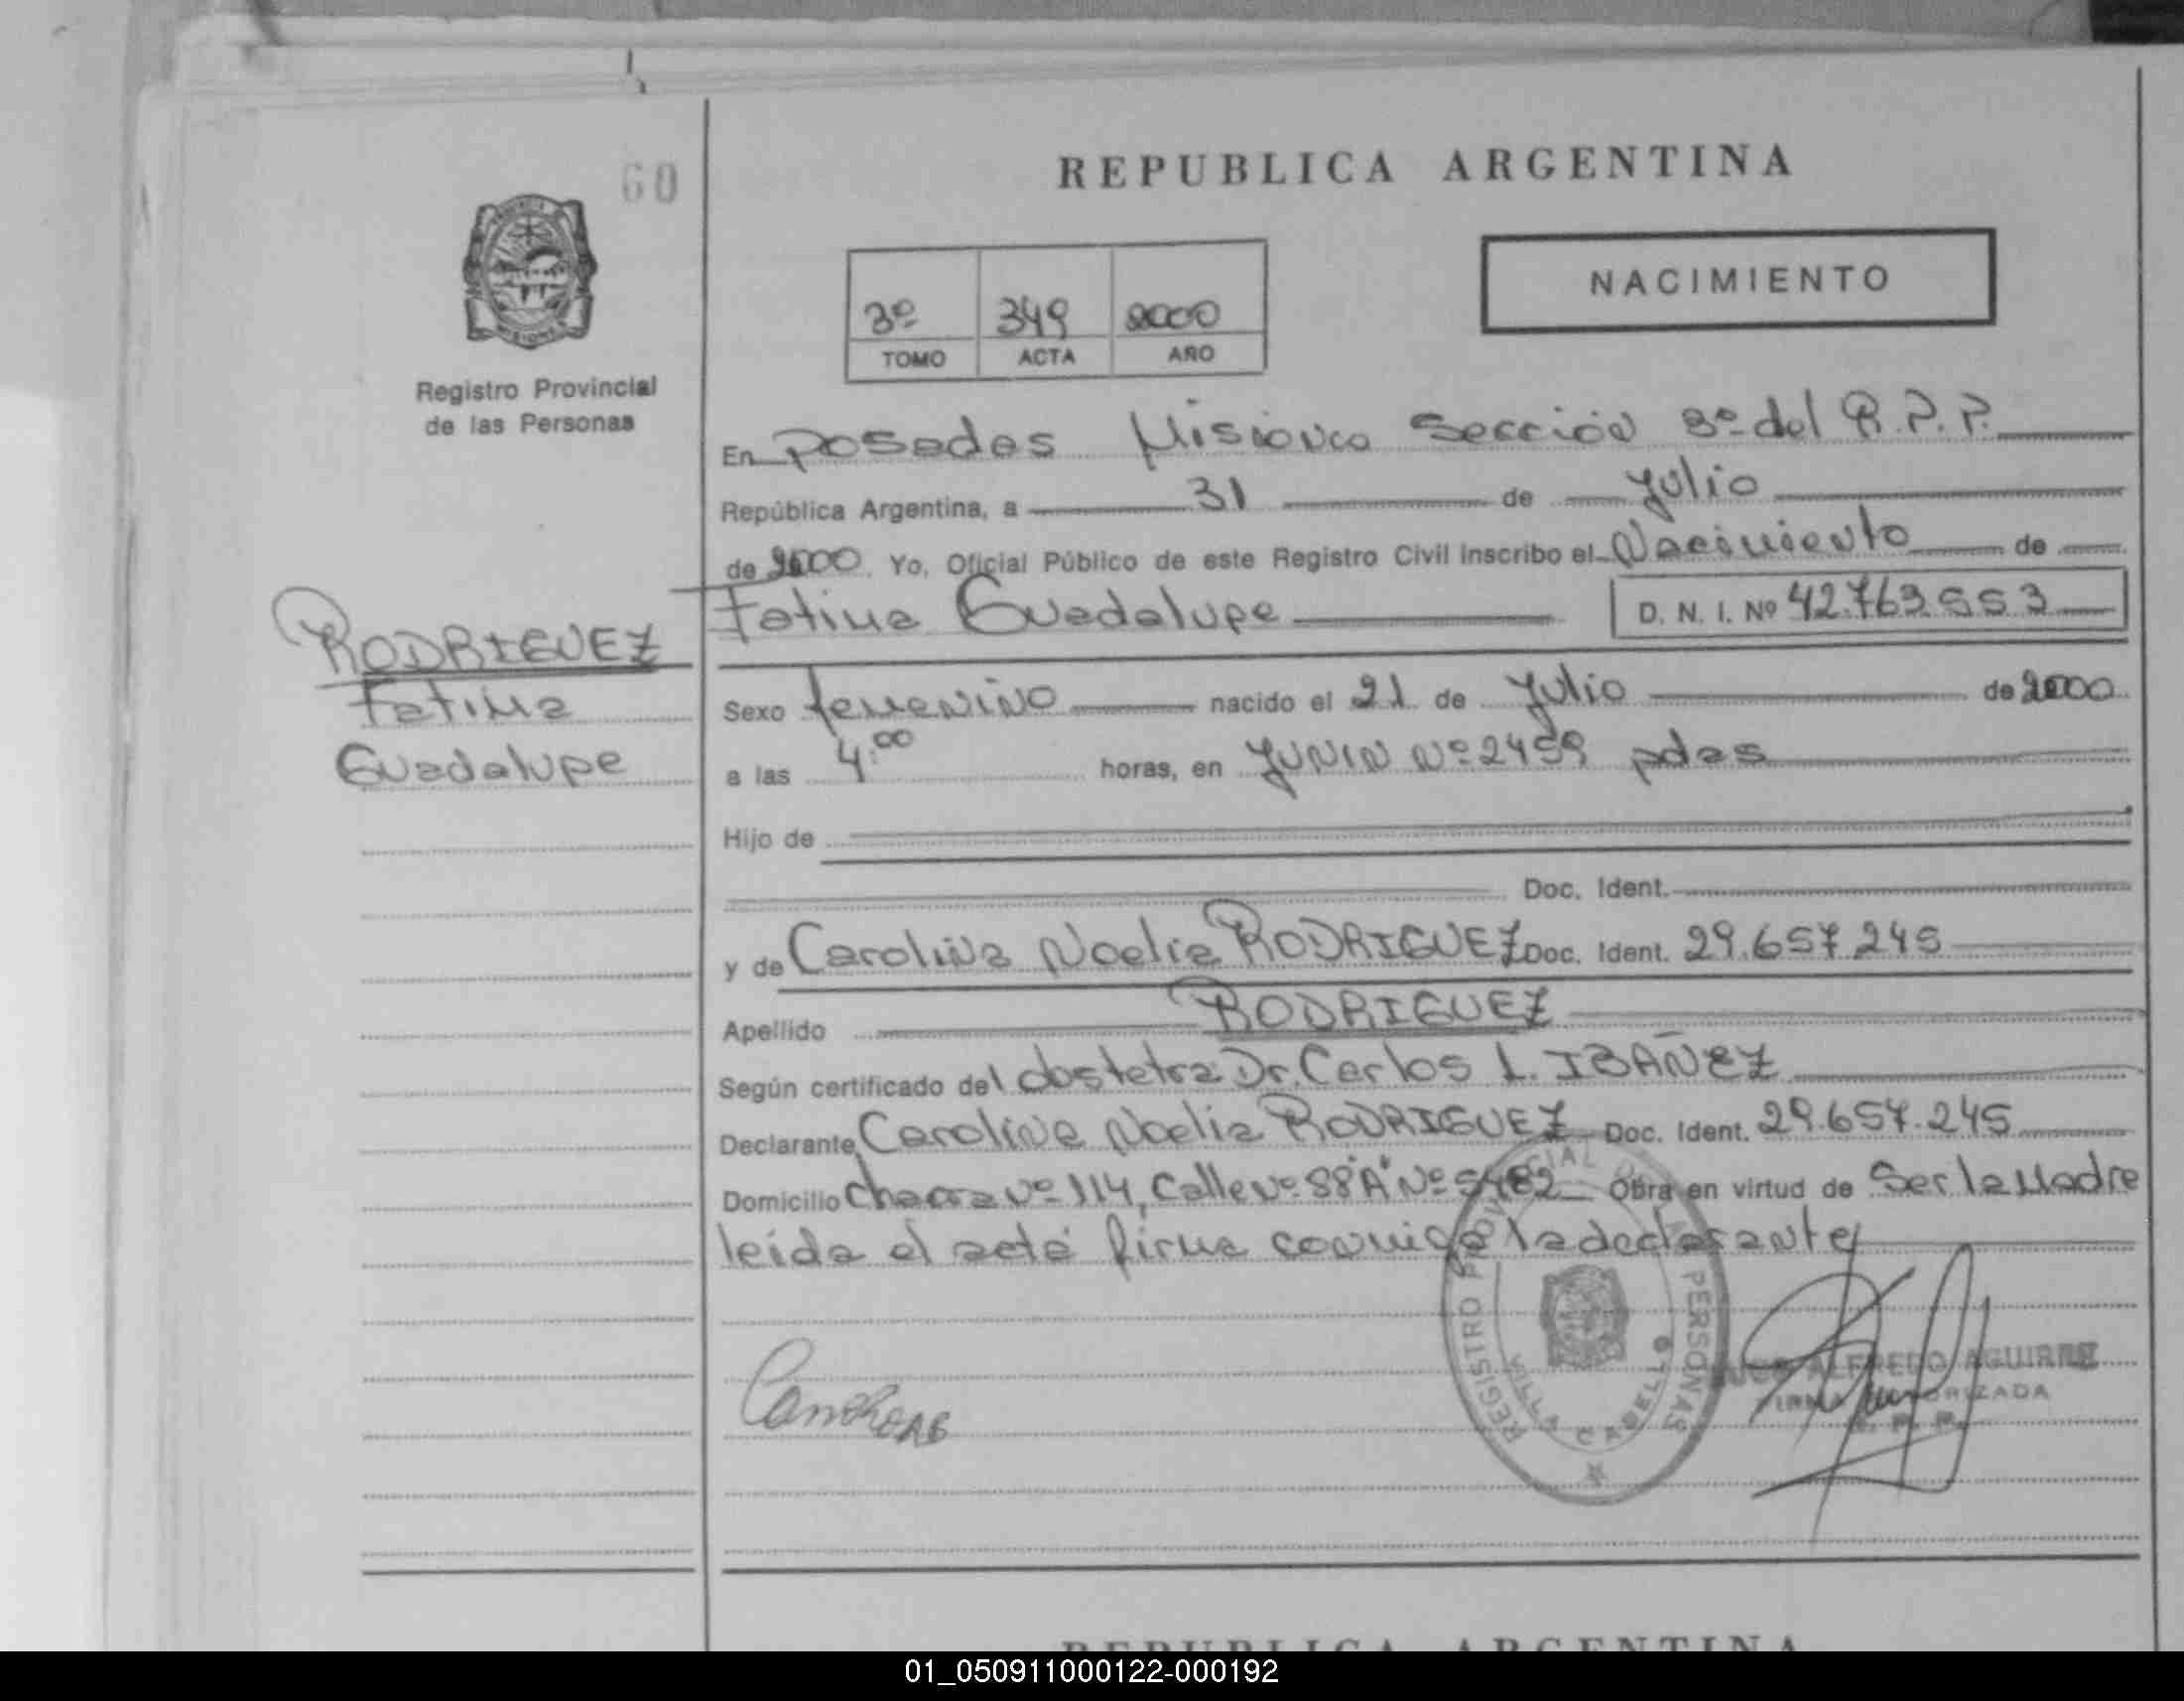 60
REPUBLICA ARGENTINA
NACIMIENTO
3º 349 2000
TOMO ACTA AÑO
Registro Provincial
de las Personas
En Posadas Misiones Sección 3º del R.P.P.
República Argentina, a 31 de Julio
de 2000. Yo, Oficial Público de este Registro Civil inscribo el Nacimiento de
Fatima Guadalupe D. N. I. Nº 42.763.553
RODRIGUEZ
Fatima
Guadalupe
Sexo femenino nacido el 21 de Julio de 2000
a las 4.00 horas, en JUNIN Nº 2459 pdas
Hijo de
Doc. Ident.
y de Carolina Noelia RODRIGUEZ Doc. Ident. 29.657.245
Apellido RODRIGUEZ
Según certificado del obstetra Dr. Carlos L. IBAÑEZ
Declarante Carolina Noelia RODRIGUEZ Doc. Ident. 29.657.245
Domicilio Chacra Nº 114, Calle Nº 88"A" Nº 5482 Obra en virtud de Ser la Madre
leída el acta firma conmigo la declarante
REGISTRO PROVINCIAL DE LAS PERSONAS
VILLA CABELLO
ALFREDO AGUIRRE
FIRMA AUTORIZADA
R. P. P.
REPUBLICA ARGENTINA
01_050911000122-000192